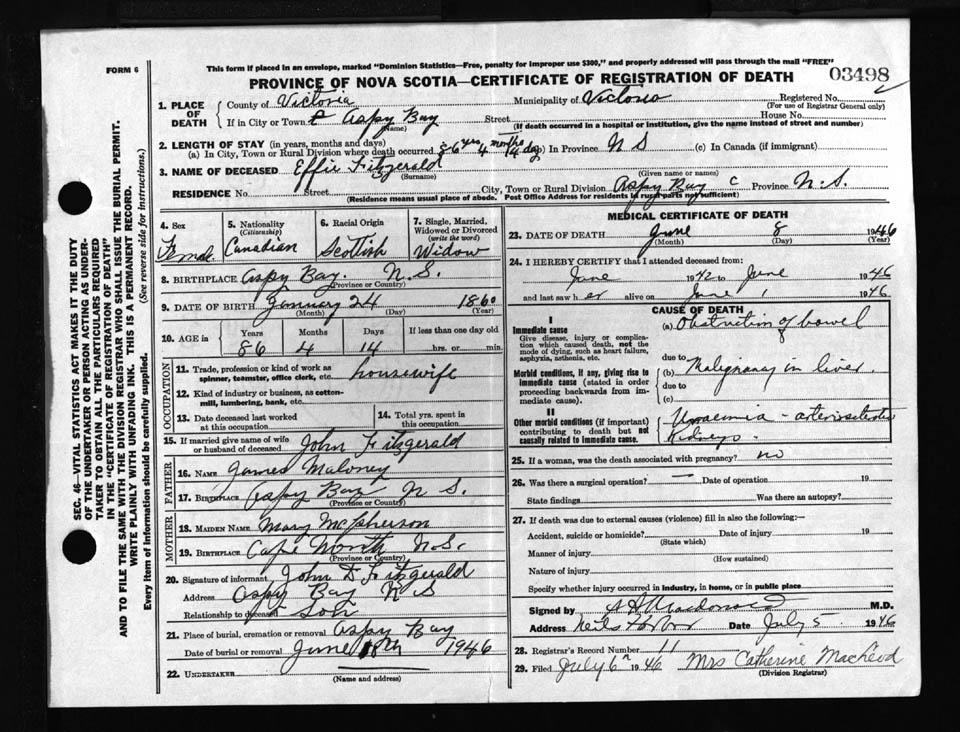 FORM 6
This form if placed in an envelope, marked "Dominion Statistics—Free, penalty for improper use $300," and properly addressed will pass through the mail "FREE"
PROVINCE OF NOVA SCOTIA—CERTIFICATE OF REGISTRATION OF DEATH
03498
1. PLACE OF DEATH
County of Victoria Municipality of Victoria Registered No.
(For use of Registrar General only)
If in City or Town Aspy Bay Street House No.
(Name) (If death occurred in a hospital or institution, give the name instead of street and number)
2. LENGTH OF STAY (in years, months and days)
(a) In City, Town or Rural Division where death occurred 86 yrs 4 months 14 days (b) In Province N S (c) In Canada (if immigrant)
3. NAME OF DECEASED Effie Fitzgerald
(Surname) (Given name or names)
RESIDENCE No. Street City, Town or Rural Division Aspy Bay C Province N.S.
(Residence means usual place of abode. Post Office Address for residents in rural parts not sufficient)
4. Sex
Female
5. Nationality
(Citizenship)
Canadian
6. Racial Origin
Scottish
7. Single, Married, Widowed or Divorced
(write the word)
Widow
8. BIRTHPLACE Aspy Bay. N.S.
(Province or Country)
9. DATE OF BIRTH January 24 1860
(Month) (Day) (Year)
10. AGE in
Years Months Days If less than one day old
86 4 14 hrs. or min.
OCCUPATION
11. Trade, profession or kind of work as spinner, teamster, office clerk, etc. housewife
12. Kind of industry or business, as cotton-mill, lumbering, bank, etc.
13. Date deceased last worked at this occupation
14. Total yrs. spent in this occupation
15. If married give name of wife or husband of deceased John Fitzgerald
FATHER
16. NAME James Maloney
17. BIRTHPLACE Aspy Bay N S.
(Province or Country)
MOTHER
18. MAIDEN NAME Mary McPherson
19. BIRTHPLACE Cape North N.S.
(Province or Country)
20. Signature of informant John D Fitzgerald
Address Aspy Bay N S
Relationship to deceased Son
21. Place of burial, cremation or removal Aspy Bay
Date of burial or removal June th 1946
22. UNDERTAKER
(Name and address)
MEDICAL CERTIFICATE OF DEATH
23. DATE OF DEATH June 8 1946
(Month) (Day) (Year)
24. I HEREBY CERTIFY that I attended deceased from:
June 1942 to June 1946
and last saw her alive on June 1 1946
CAUSE OF DEATH
I
Immediate cause
Give disease, injury or complication which caused death, not the mode of dying, such as heart failure, asphyxia, asthenia, etc.
(a) Obstruction of bowel
due to
Morbid conditions, if any, giving rise to immediate cause (stated in order proceeding backwards from immediate cause).
(b) Malignancy in liver.
due to
(c)
II
Other morbid conditions (if important) contributing to death but not causally related to immediate cause.
Uraemia - arteriosclerotic
Kidneys.
25. If a woman, was the death associated with pregnancy? no
26. Was there a surgical operation? — Date of operation 19
State findings Was there an autopsy?
27. If death was due to external causes (violence) fill in also the following:—
Accident, suicide or homicide? Date of injury 19
(State which)
Manner of injury
(How sustained)
Nature of injury
Specify whether injury occurred in industry, in home, or in public place
Signed by Macdonald M.D.
Address Neils Harbor Date July 5 1946
28. Registrar's Record Number 11
29. Filed July 6th 1946 Mrs Catherine MacLeod
(Division Registrar)
SEC. 46—VITAL STATISTICS ACT MAKES IT THE DUTY
OF THE UNDERTAKER OR PERSON ACTING AS UNDER-
TAKER TO OBTAIN ALL THE PARTICULARS REQUIRED
IN THE "CERTIFICATE OF REGISTRATION OF DEATH"
AND TO FILE THE SAME WITH THE DIVISION REGISTRAR WHO SHALL ISSUE THE BURIAL PERMIT.
WRITE PLAINLY WITH UNFADING INK. THIS IS A PERMANENT RECORD.
Every item of information should be carefully supplied. (See reverse side for instructions.)